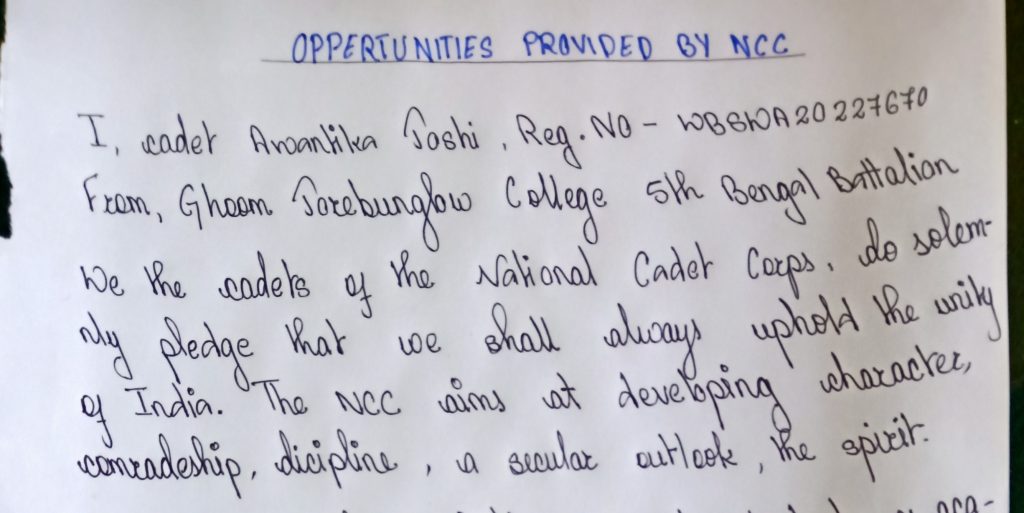 OPPERTUNITIES PROVIDED BY NCC
I, cadet Avantika Joshi, Reg. NO - WBSWA20227670
From, Ghoom Jorebunglow College 5th Bengal Battalion
We the cadets of the National Cadet Corps, do solem-
nly pledge that we shall always uphold the unity
of India. The NCC aims at developing character,
comradeship, dicipline, a secular outlook, the spirit.
aca-